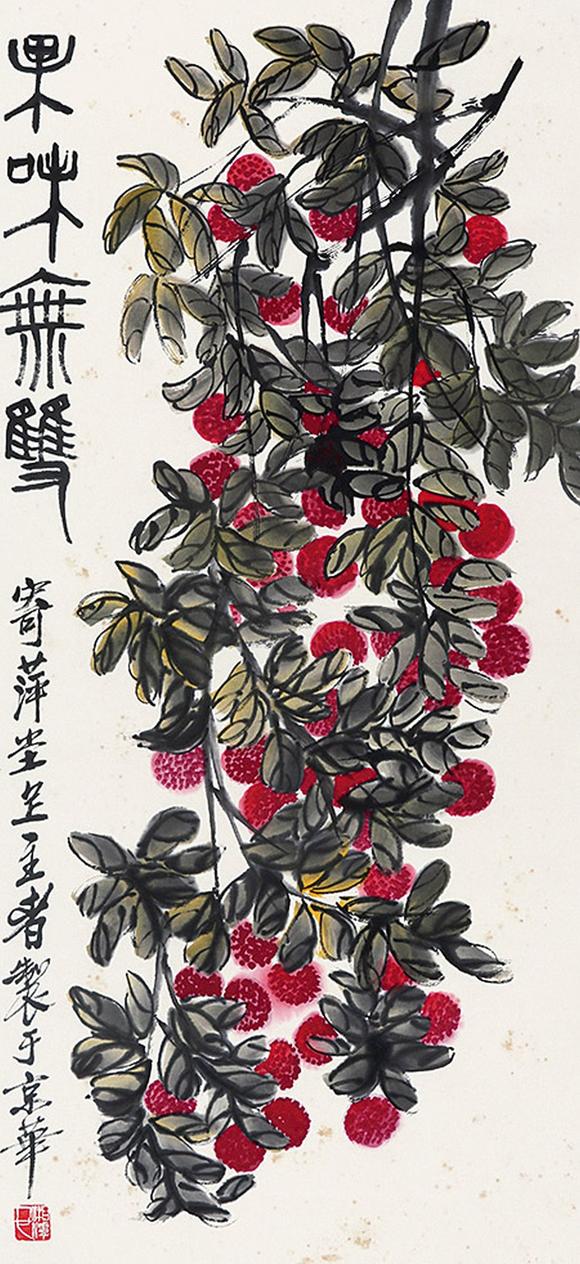 果味無雙
寄萍堂上主者製于京華